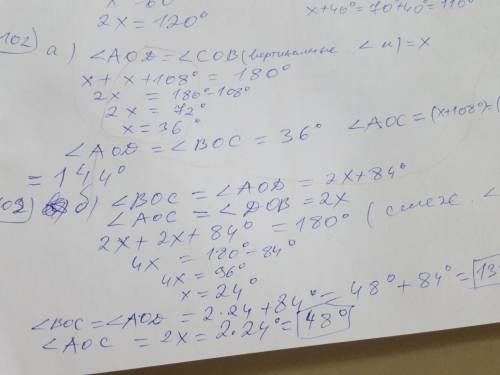 x=60°
2x=120°
x+40°=70°+40°=110°
102 а) ∠AOD=∠COB(вертикальные ∠и)=x
x+x+108°=180°
2x = 180°-108°
2x = 72°
x=36°
∠AOD=∠BOC=36° ∠AOC=(x+108°)=(
=144°
102) б) ∠BOC=∠AOD=2x+84°
∠AOC=∠DOB=2x
2x+2x+84°=180° (смеж. ∠
4x=180°-84°
4x=96°
x=24°
∠BOC=∠AOD=2·24+84°=48°+84°=13
∠AOC = 2x=2·24°=48°